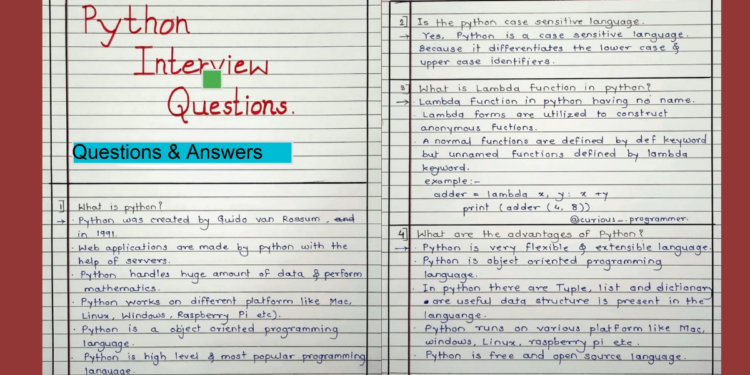 Python
Interview
Questions.
Questions & Answers
1] What is python?
→ Python was created by Guido van Rossum, and
in 1991.
· Web applications are made by python with the
help of servers.
· Python handles huge amount of data & perform
mathematics.
· Python works on different platform like Mac,
Linux, Windows, Raspberry Pi etc).
· Python is a object oriented programming
language.
· Python is high level & most popular programming
language.
2] Is the python case sensitive language.
→ Yes, Python is a case sensitive language.
Because it differentiates the lower case &
upper case identifiers.
3] What is Lambda function in python?
→ Lambda Function in python having no name.
· Lambda forms are utilized to construct
anonymous fuctions.
· A normal functions are defined by def keyword
but unnamed functions defined by lambda
keyword.
example:-
adder = lambda x, y: x + y
print (adder (4, 8))
@curious_.programmer.
4] What are the advantages of Python?
→ Python is very flexible & extensible language.
· Python is object oriented programming
language.
· In python there are Tuple, list and dictionary
are useful data structure is present in the
languange.
· Python runs on various platform like Mac,
windows, Linux, raspberry pi etc.
· Python is free and open source language.